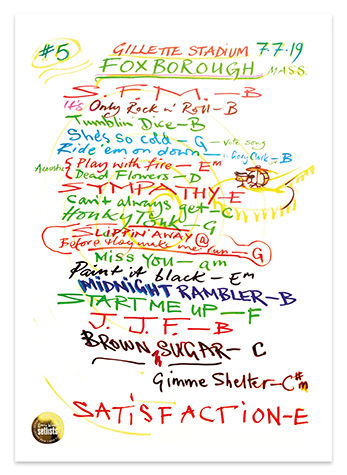 #5
GILLETTE STADIUM 7.7.19
FOXBOROUGH MASS.
S.F.M.-B
It's Only Rock n' Roll-B
Tumblin' Dice-B
She's so cold-G - Vote song
Ride 'em on down - B
Acoustic { Play with fire-Em
Dead Flowers-D
SYMPATHY-E
Can't always get-C
Honky Tonk-G
SLIPPIN' AWAY @
Before they make me run-G
MISS YOU-am
Paint it black-Em
MIDNIGHT RAMBLER-B
START ME UP-F
J.J.F.-B
BROWN SUGAR-C
Gimme Shelter-C#m
SATISFACTION-E
setlists